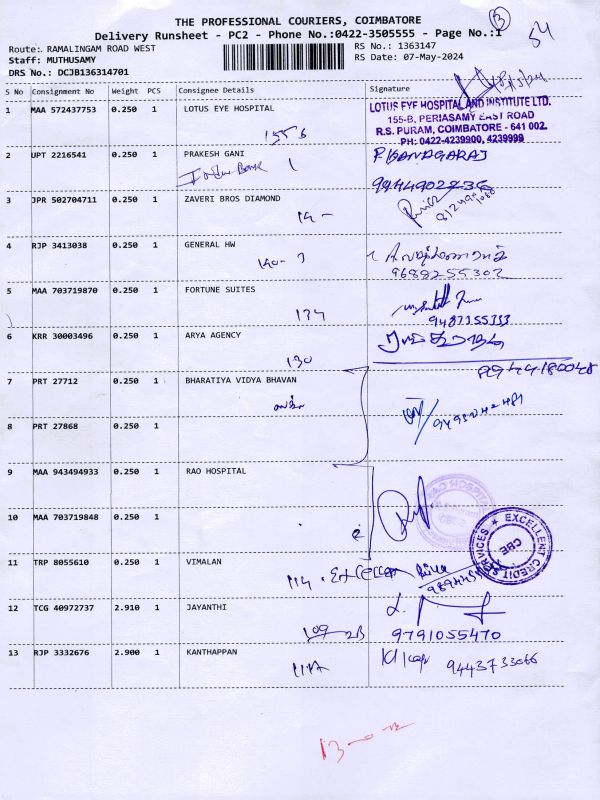 THE PROFESSIONAL COURIERS, COIMBATORE
Delivery Runsheet - PC2 - Phone No.:0422-3505555 - Page No.:1
3
54
Route:. RAMALINGAM ROAD WEST
RS No.: 1363147
Staff: MUTHUSAMY
RS Date: 07-May-2024
DRS No.: DCJB136314701
S No Consignment No Weight PCS Consignee Details Signature
1 MAA 572437753 0.250 1 LOTUS EYE HOSPITAL
155 B
LOTUS EYE HOSPITAL AND INSTITUTE LTD.
155-B, PERIASAMY EAST ROAD
R.S. PURAM, COIMBATORE - 641 002.
PH: 0422-4239900, 4239999
2 UPT 2216541 0.250 1 PRAKESH GANI
P. KANAGARAJ
3 JPR 502704711 0.250 1 ZAVERI BROS DIAMOND
4 RJP 3413038 0.250 1 GENERAL HW
9689255302
5 MAA 703719870 0.250 1 FORTUNE SUITES
134
9487355333
6 KRR 30003496 0.250 1 ARYA AGENCY
130
9944180048
7 PRT 27712 0.250 1 BHARATIYA VIDYA BHAVAN
8 PRT 27868 0.250 1
9 MAA 943494933 0.250 1 RAO HOSPITAL
RAO HOSPITAL
10 MAA 703719848 0.250 1
EXCELLENT CREDIT SERVICES
CBE
11 TRP 8055610 0.250 1 VIMALAN
12 TCG 40972737 2.910 1 JAYANTHI
109 2B
9791055470
13 RJP 3332676 2.900 1 KANTHAPPAN
117A
9443733066